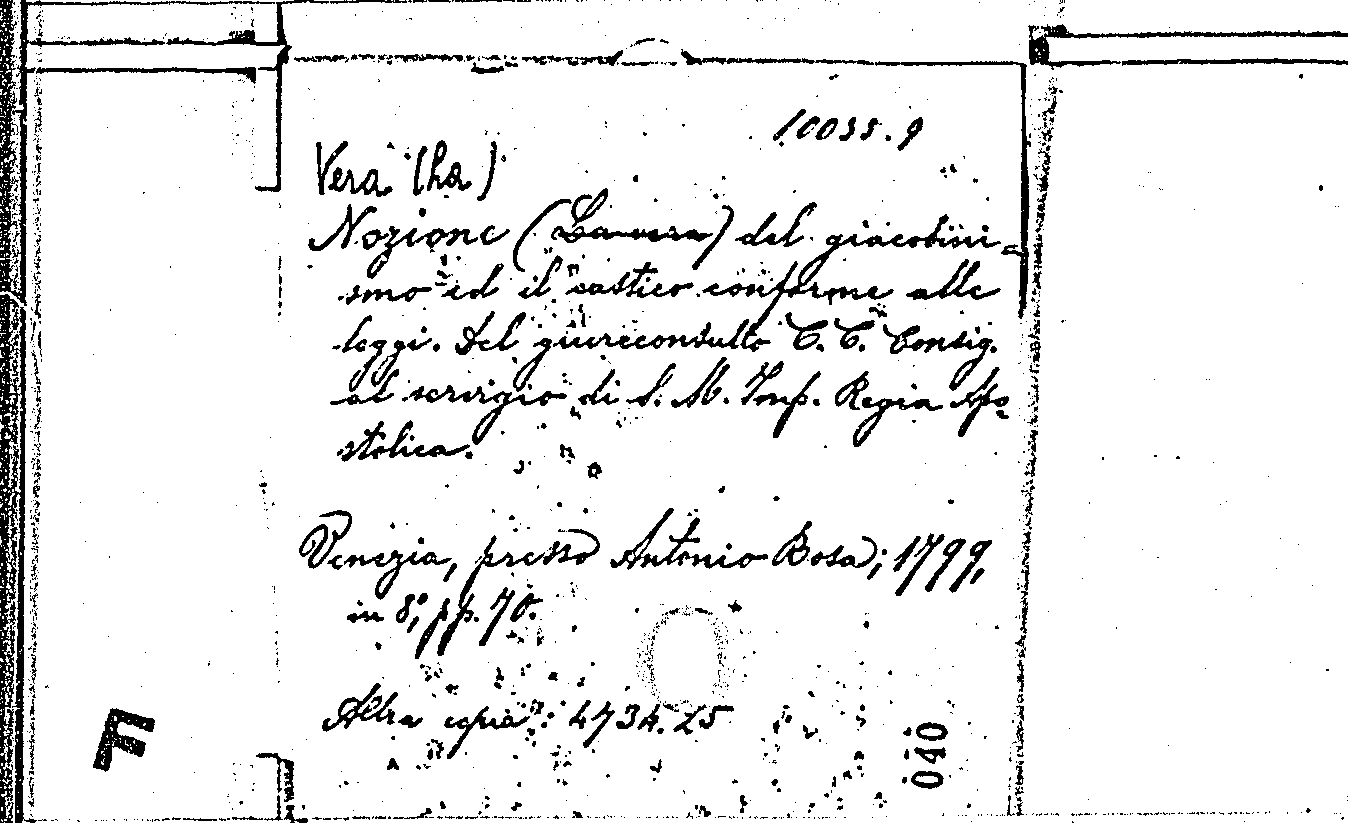 10035.9
Vera (La)
Nozione (La vera) del giacobini-
smo ed il castico conforme alle
leggi. Del giureconsulto C. C. Consig.
al servigio di S. M. Imp. Regia Apo-
stolica.
Venezia, presso Antonio Rosa; 1799,
in 8°, pp. 70.
Altra copia: 4734.25
F
040